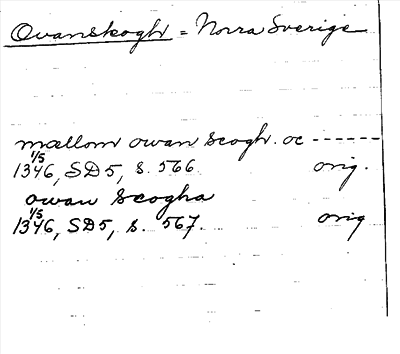 Ovanskogh = Norra Sverige
mællom owan scogh. oc ------
1/5
1346, SD5, s. 566. orig.
owan scogha
1/5
1346, SD5, s. 567. orig